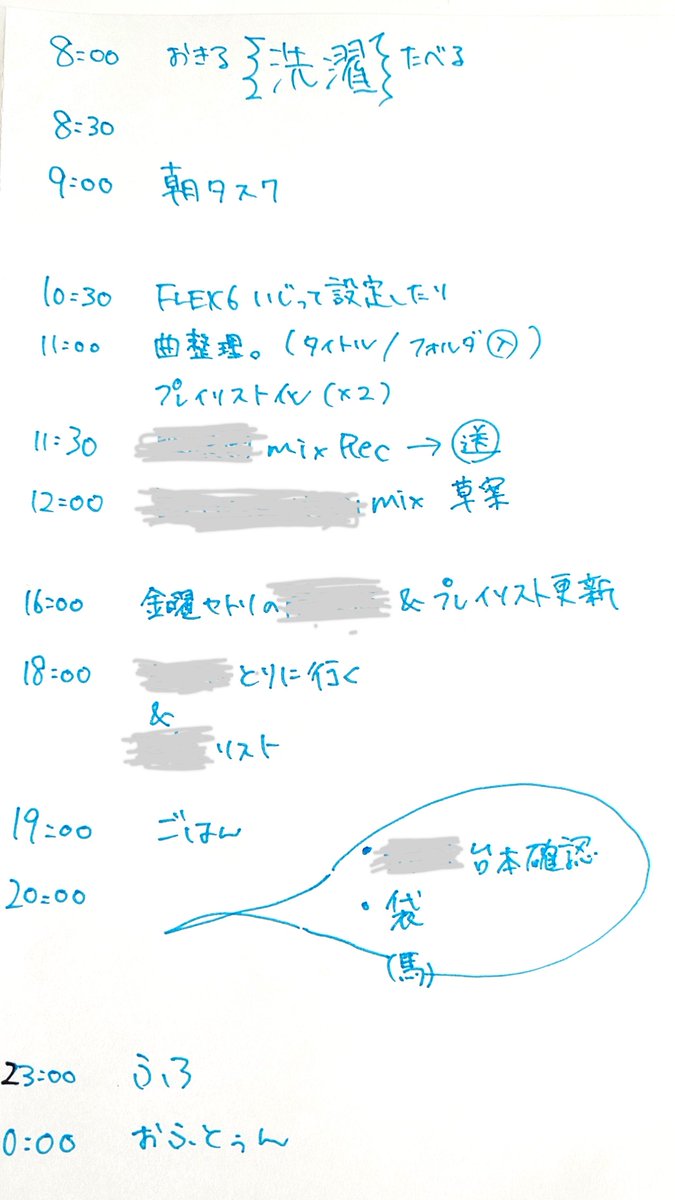 8:00 おきる {洗濯} たべる
8:30
9:00 朝タスク
10:30 FLEX6 いじって設定したり
11:00 曲整理。(タイトル/フォルダ㋐)
プレイリスト化(×2)
11:30 mix Rec → 送
12:00 mix 草案
16:00 金曜セトリの & プレイリスト更新
18:00 とりに行く
&
リスト
19:00 ごはん
20:00
・ 台本確認
・袋
(馬)
23:00 ふろ
0:00 おふとぅん